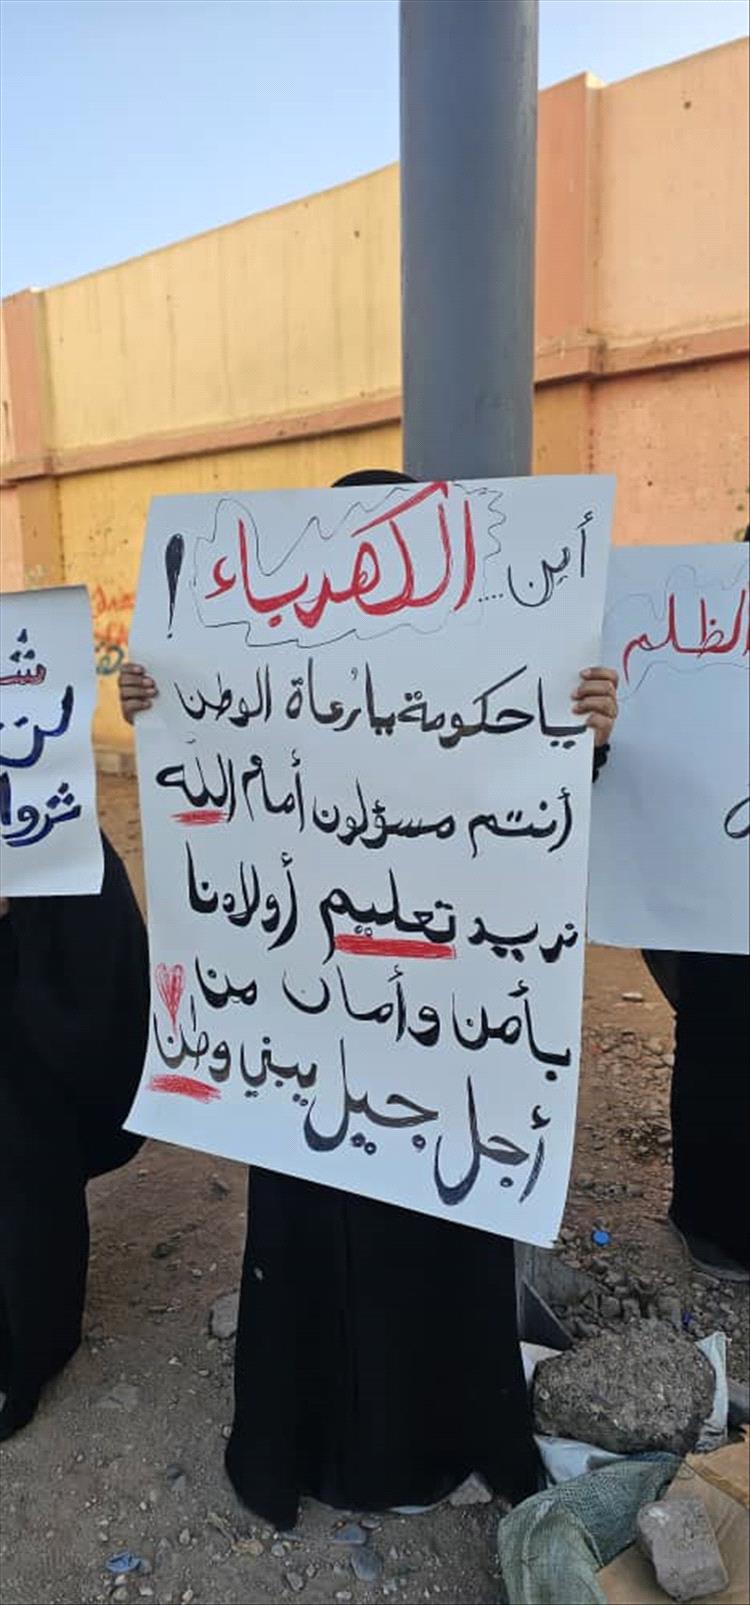 أين.... الكهرباء !
يا حكومة يا رُعاة الوطن
أنتم مسؤلون أمام الله
نريد تعليم أولادنا
بأمن وأمان من
أجل جيل يبني وطن
الظلم
ثروا